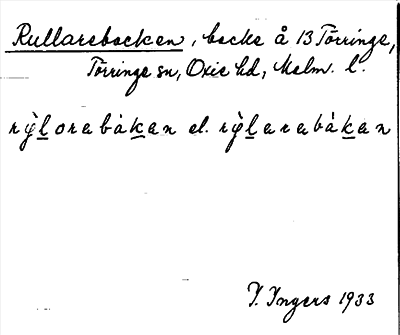 Rullarebacken, backe å 13 Törringe,
Törringe sn, Oxie hd, Malm. l.
rỳlorabákan el. rỳlarabákan
I. Ingers 1933